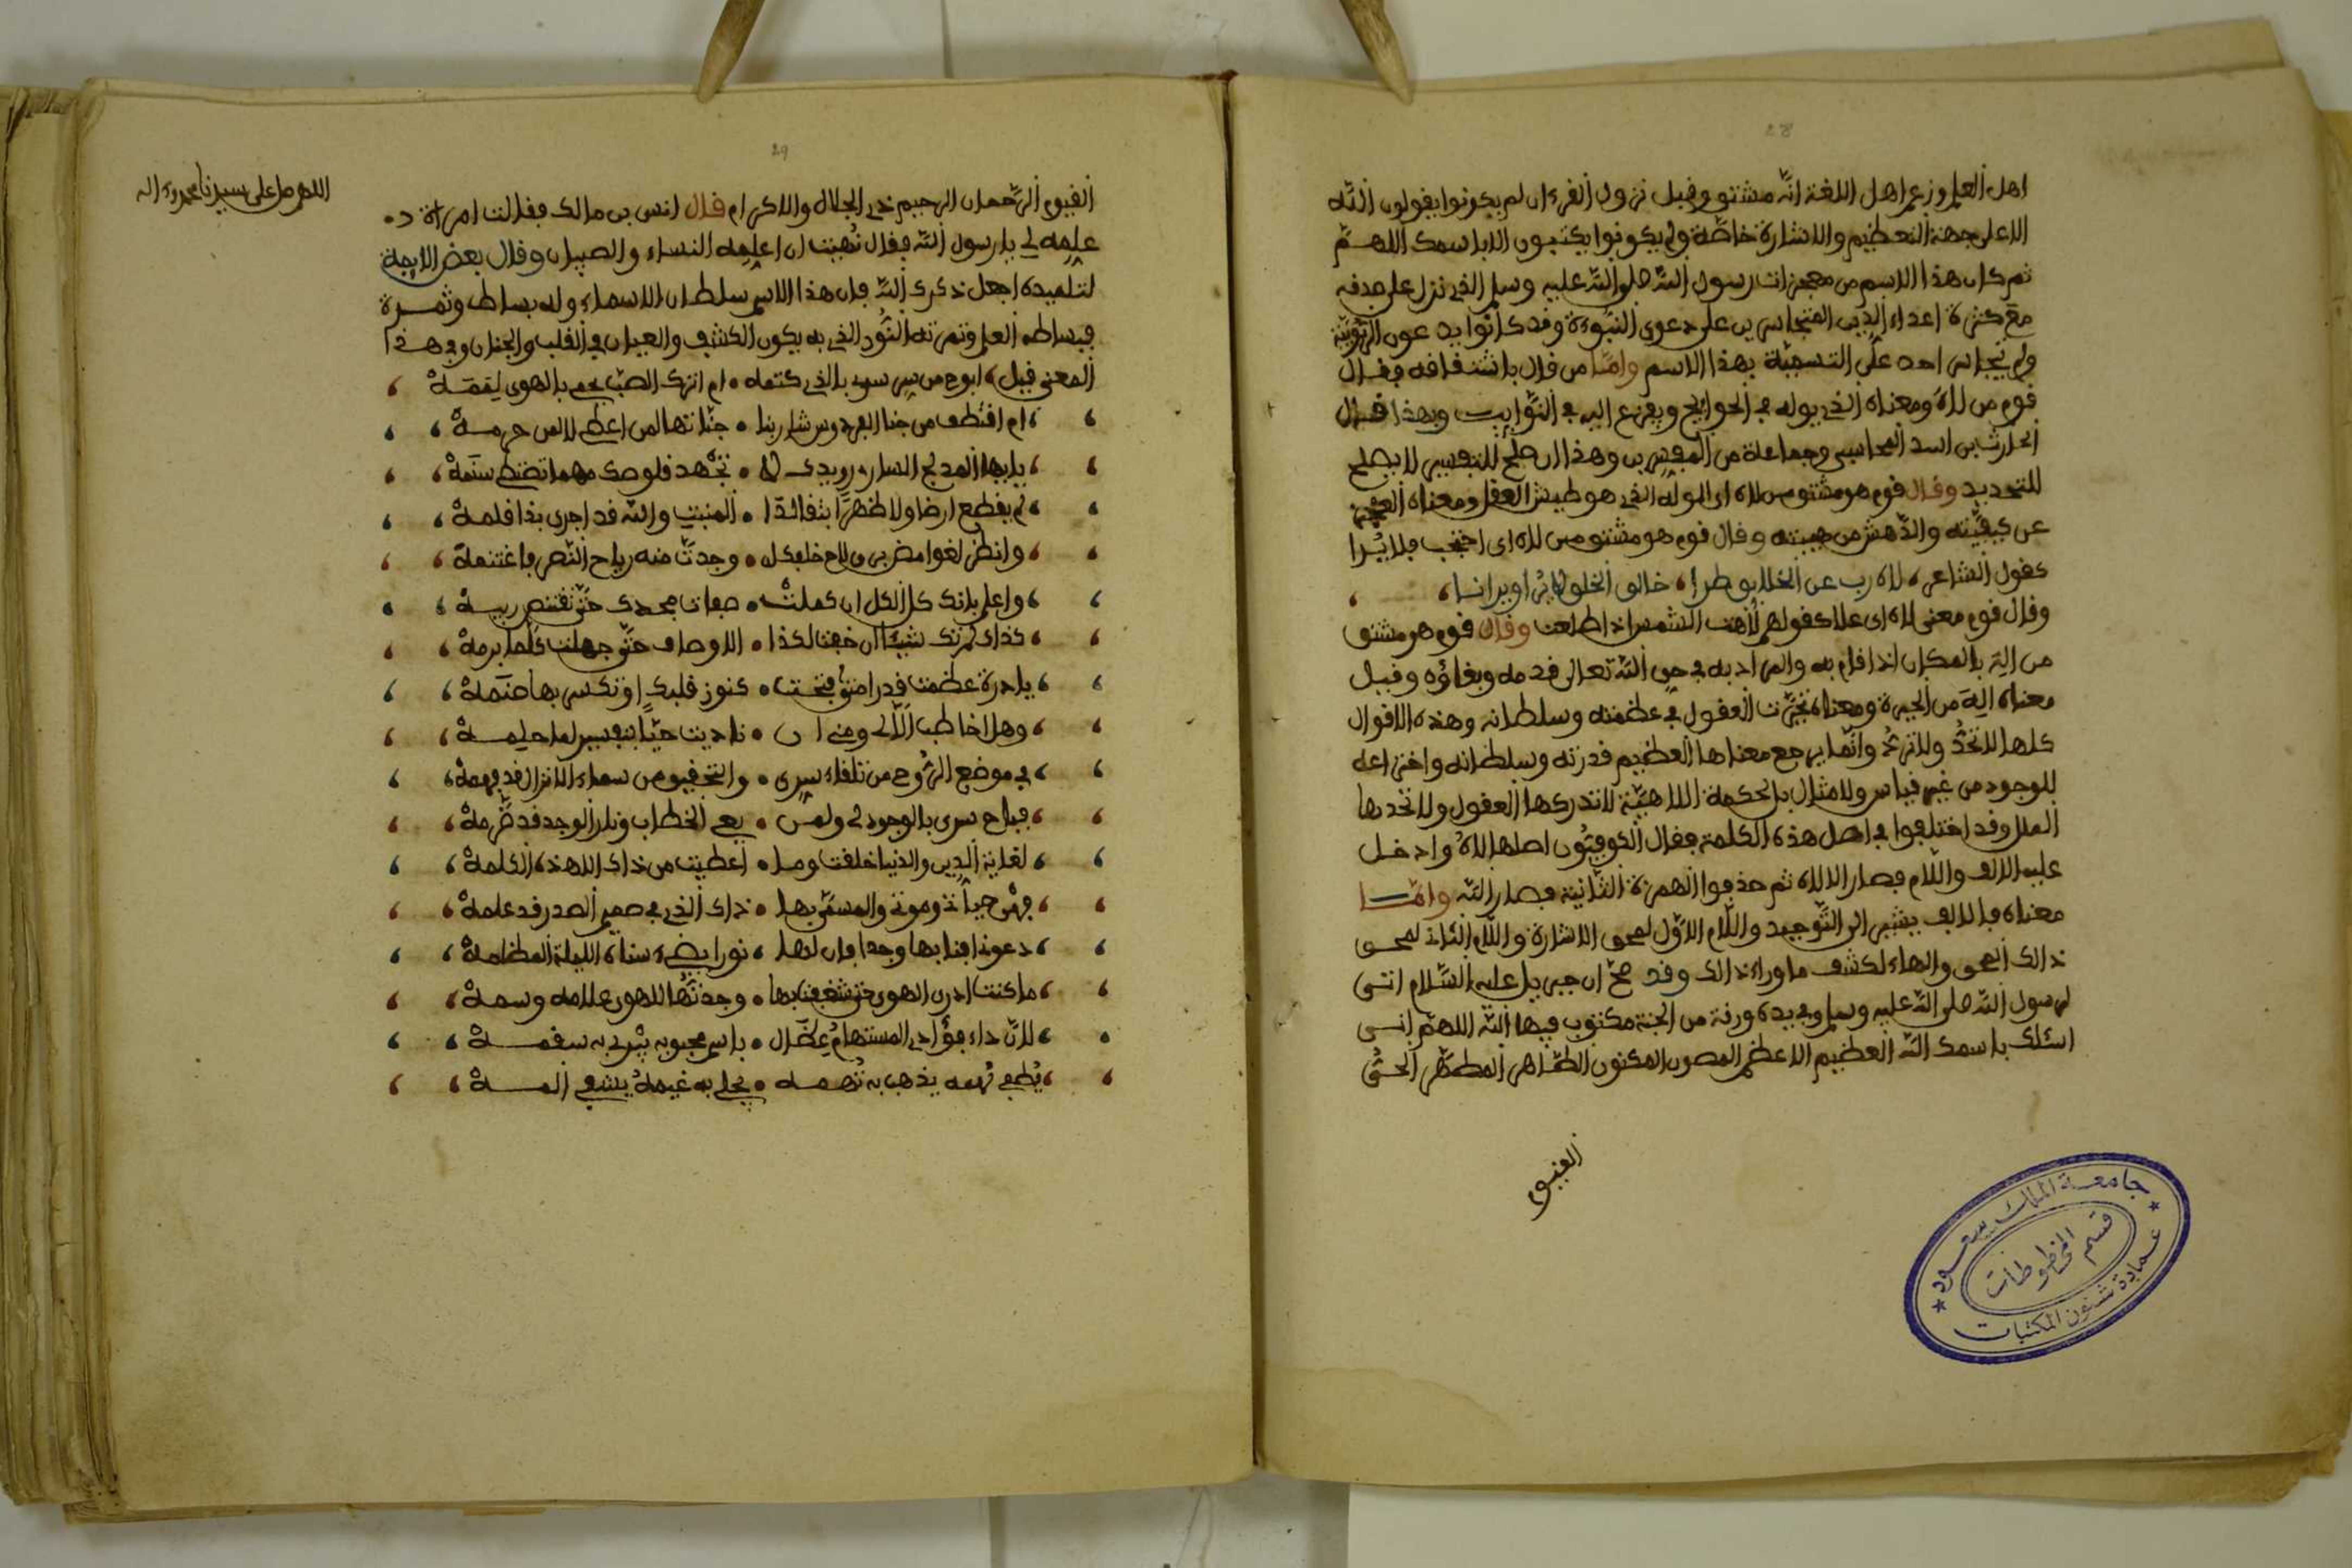 28
اهل العلم وزعم اهل اللغة انّه مشتق وقبل نزول القرءان لم يكونوا يقولون اللّه
الا على جهة التعظيم والاشارة خاصّة ولم يكونوا يكتبون الا باسمك اللهــمّ
ثم كان هذا الاسم من معجزات رسول اللّه صلى اللّه عليه وسلم الذى نزل على صدقه
مع كثرة اعداء الدين المتجاسرين على دعوى النبوءة وقد كانوا يدعون الربوبيّة
ولم يتجاسر احد على التسميّة بهذا الاسم وامّا من قال باشتقاقه فقـال
قوم من لاهَ ومعناه الذى يوله فى الحوائج ويفزع اليه فى النّوايب وبهذا قـال
الحارث بن اسد المحاسبى وجماعة من المفسرين وهذا ان صلح للتفسير لا يصلح
للتحديد وقال قوم هو مشتق من لاه اى الوله الذى هو طيش العقل ومعناه العجز
عن كيفيّته والدّهش من هيبته وقال قوم هو مشتق من لاه اى احتجب فلا يُرا
كقول الشاعر، لاه رب عن الخلايق طرا، خالق الخلق لا يُرا ويرانــا،
وقال قوم معنى لاه اى علا كقولهم لاهت الشمس اذا طلعت وقال قوم هو مشتق
من الِهَ بالمكان اذا قام به والمراد به فى حق اللّه تعالى قدمه وبقاؤه وقيل
معناه اليه من الحيرة ومعناه تحيّرت العقول فى عظمته وسلطانه وهذه الاقوال
كلها لا تحدّ وانّما يرجع معناها العظيم قدرته وسلطانه واختراعه
للوجود من غير قياس ولا مثال بالحكمة اللاهيّة لا تدركها العقول ولا تحدها
العلل وقد اختلفوا فى اصل هذه الكلمة فقال الكوفيّون اصلها لاهٌ وادخل
عليه الالف واللام فصار الالاه ثم حذفوا الهمزة الثّانية فصار اللّه وامّــا
معناه فالالف يشير الى التّوحيد واللّام الاوّل لمحو الاشارة واللّام الثانى لمحو
ذالك المحو والهاء لكشف ما وراء ذالك وقد صحّ ان جبريل عليه السّلام اتى
لرسول اللّه صلى اللّه عليه وسلم وفى يده ورقة من الجنة مكتوب فيها اللّه اللهم انى
اسئلك باسمك اللّه العظيم الاعظم المصون المكنون الطّاهر المطهّر الحىّ
القيوم
جامعة الملك سعود
قسم المخطوطات
عمادة شئون المكتبات
29
اللهم صل على سيدنا محمد وءاله
القيوم الرّحمان الرحيم ذى الجلال والاكرام قال انس بن مالك فقالت امراة د
علمه لى يا رسول اللّه فقال نُهيت ان اعلمه النساء والصبيان وقال بعض الايمة
لتلميذه اجعل ذكرك اللّه فان هذا الاسم سلطان الاسماء وله بساط وثمــرة
فبساطه العلم وثمرته النّور الذى به يكون الكشف والعيان فى القلب والجنان وفى هــذا
المعنى قيل، ابوح من سر سرى بالذى كتمه ، ام اترك الصّب يحى بالهوى
، ام اقتطف من جنا الفردوس شاربنا ، جنّاتها لمن اعظم حرمــهْ ،
، يايها المدلج السار رويدك لا ، تجهد قلوصك مهما تضنه ،
، لم يقطع ارضا ولا ظهرًا ، المنبت واللّه قد اجرى بذا قلمــهْ ،
، وانظر لغوامض ، وجدت منه رياح النّصر فاغتنمهْ ،
، واعلم بانك كل الكل ان كملتْ ، صفات مجدك حتى تقتنص ،
، كذاك لم تك شيئا ان خفت لكذا ، الاوصاف حتّى جهلت كلما ،
، يا درة عظمت قدرا متى فتحت ، كنوز قلبك ،
، وهل اخاطب الّا لى ومنى ان ، ناديت حيّا ،
، فى موضع الرّوح من تلقاء سرى ، والتحقيق من سماء قد فهمهْ،
، فباح سرى بالوجود لى ولمن ، يعى الخطاب ونار الوجد قد ضّرمهْ ،
، لغاية الدين والدنيا خلقت وما ، اعطيت من ذاك الا هذه الكلمهْ ،
، فهى حياتى وموتى والمسمّى بها ، ذاك الذى فى صميم الصدر قد علمهْ ،
، دعونى افنا بها وجدا فان لها ، نورا يضىء سناه الليلة المظلمهْ ،
، ما كنت ادرى الهوى حتى شغفت بها ، وجدتّها للهوى علامه وسمــهْ ،
، لانّ داء فؤادى المستهام عضال ، باسم محبوبه يبرى به سقمــهْ ،
، يُطفى يذهب به تُهمــه ، يجلى به غيمهُ يشفى المــهْ ،